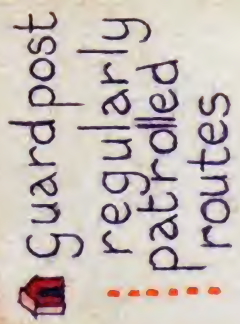 guard post
regularly
patrolled
routes